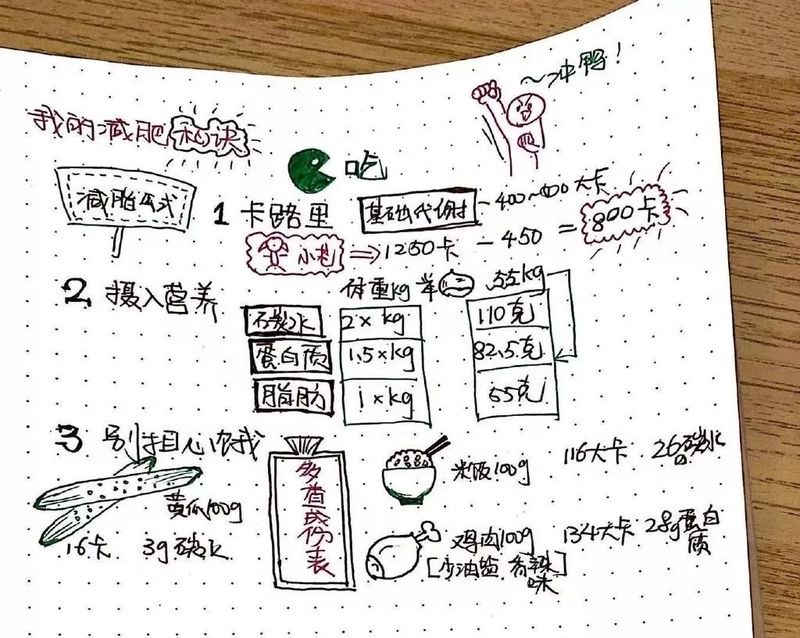 ~冲鸭!
我的减肥秘诀
吃
减脂公式
1 卡路里 基础代谢 -400~500大卡
小赵 ⇒ 1250卡 - 450 = 800卡
2 摄入营养 体重kg 举 55kg
碳水 2×kg 110克
蛋白质 1.5×kg 82.5克
脂肪 1×kg 55克
3 别担心饿我
多查成份表
黄瓜100g
16卡 3g碳水
米饭100g 116大卡 26g碳水
鸡肉100g 134大卡 28g蛋白质
[少油盐 香辣味]